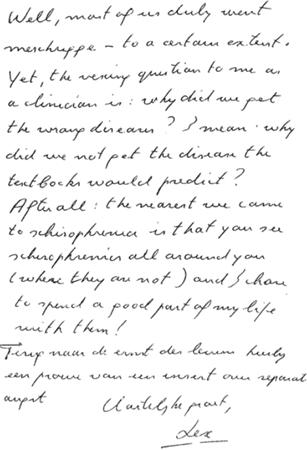 Well, most of us duly went
meschugge – to a certain extent.
Yet, the vexing question to me as
a clinician is: why did we get
the wrong disease? I mean: why
did we not get the disease the
textbooks would predict?
After all: the nearest we came
to schizophrenia is that you see
schizophrenics all around you
(where they are not) and I have
to spend a good part of my life
with them!
Terug naar de ernst des levens hierbij
een proeve van een insert over separatie
angst
Hartelijke groet,
Lex